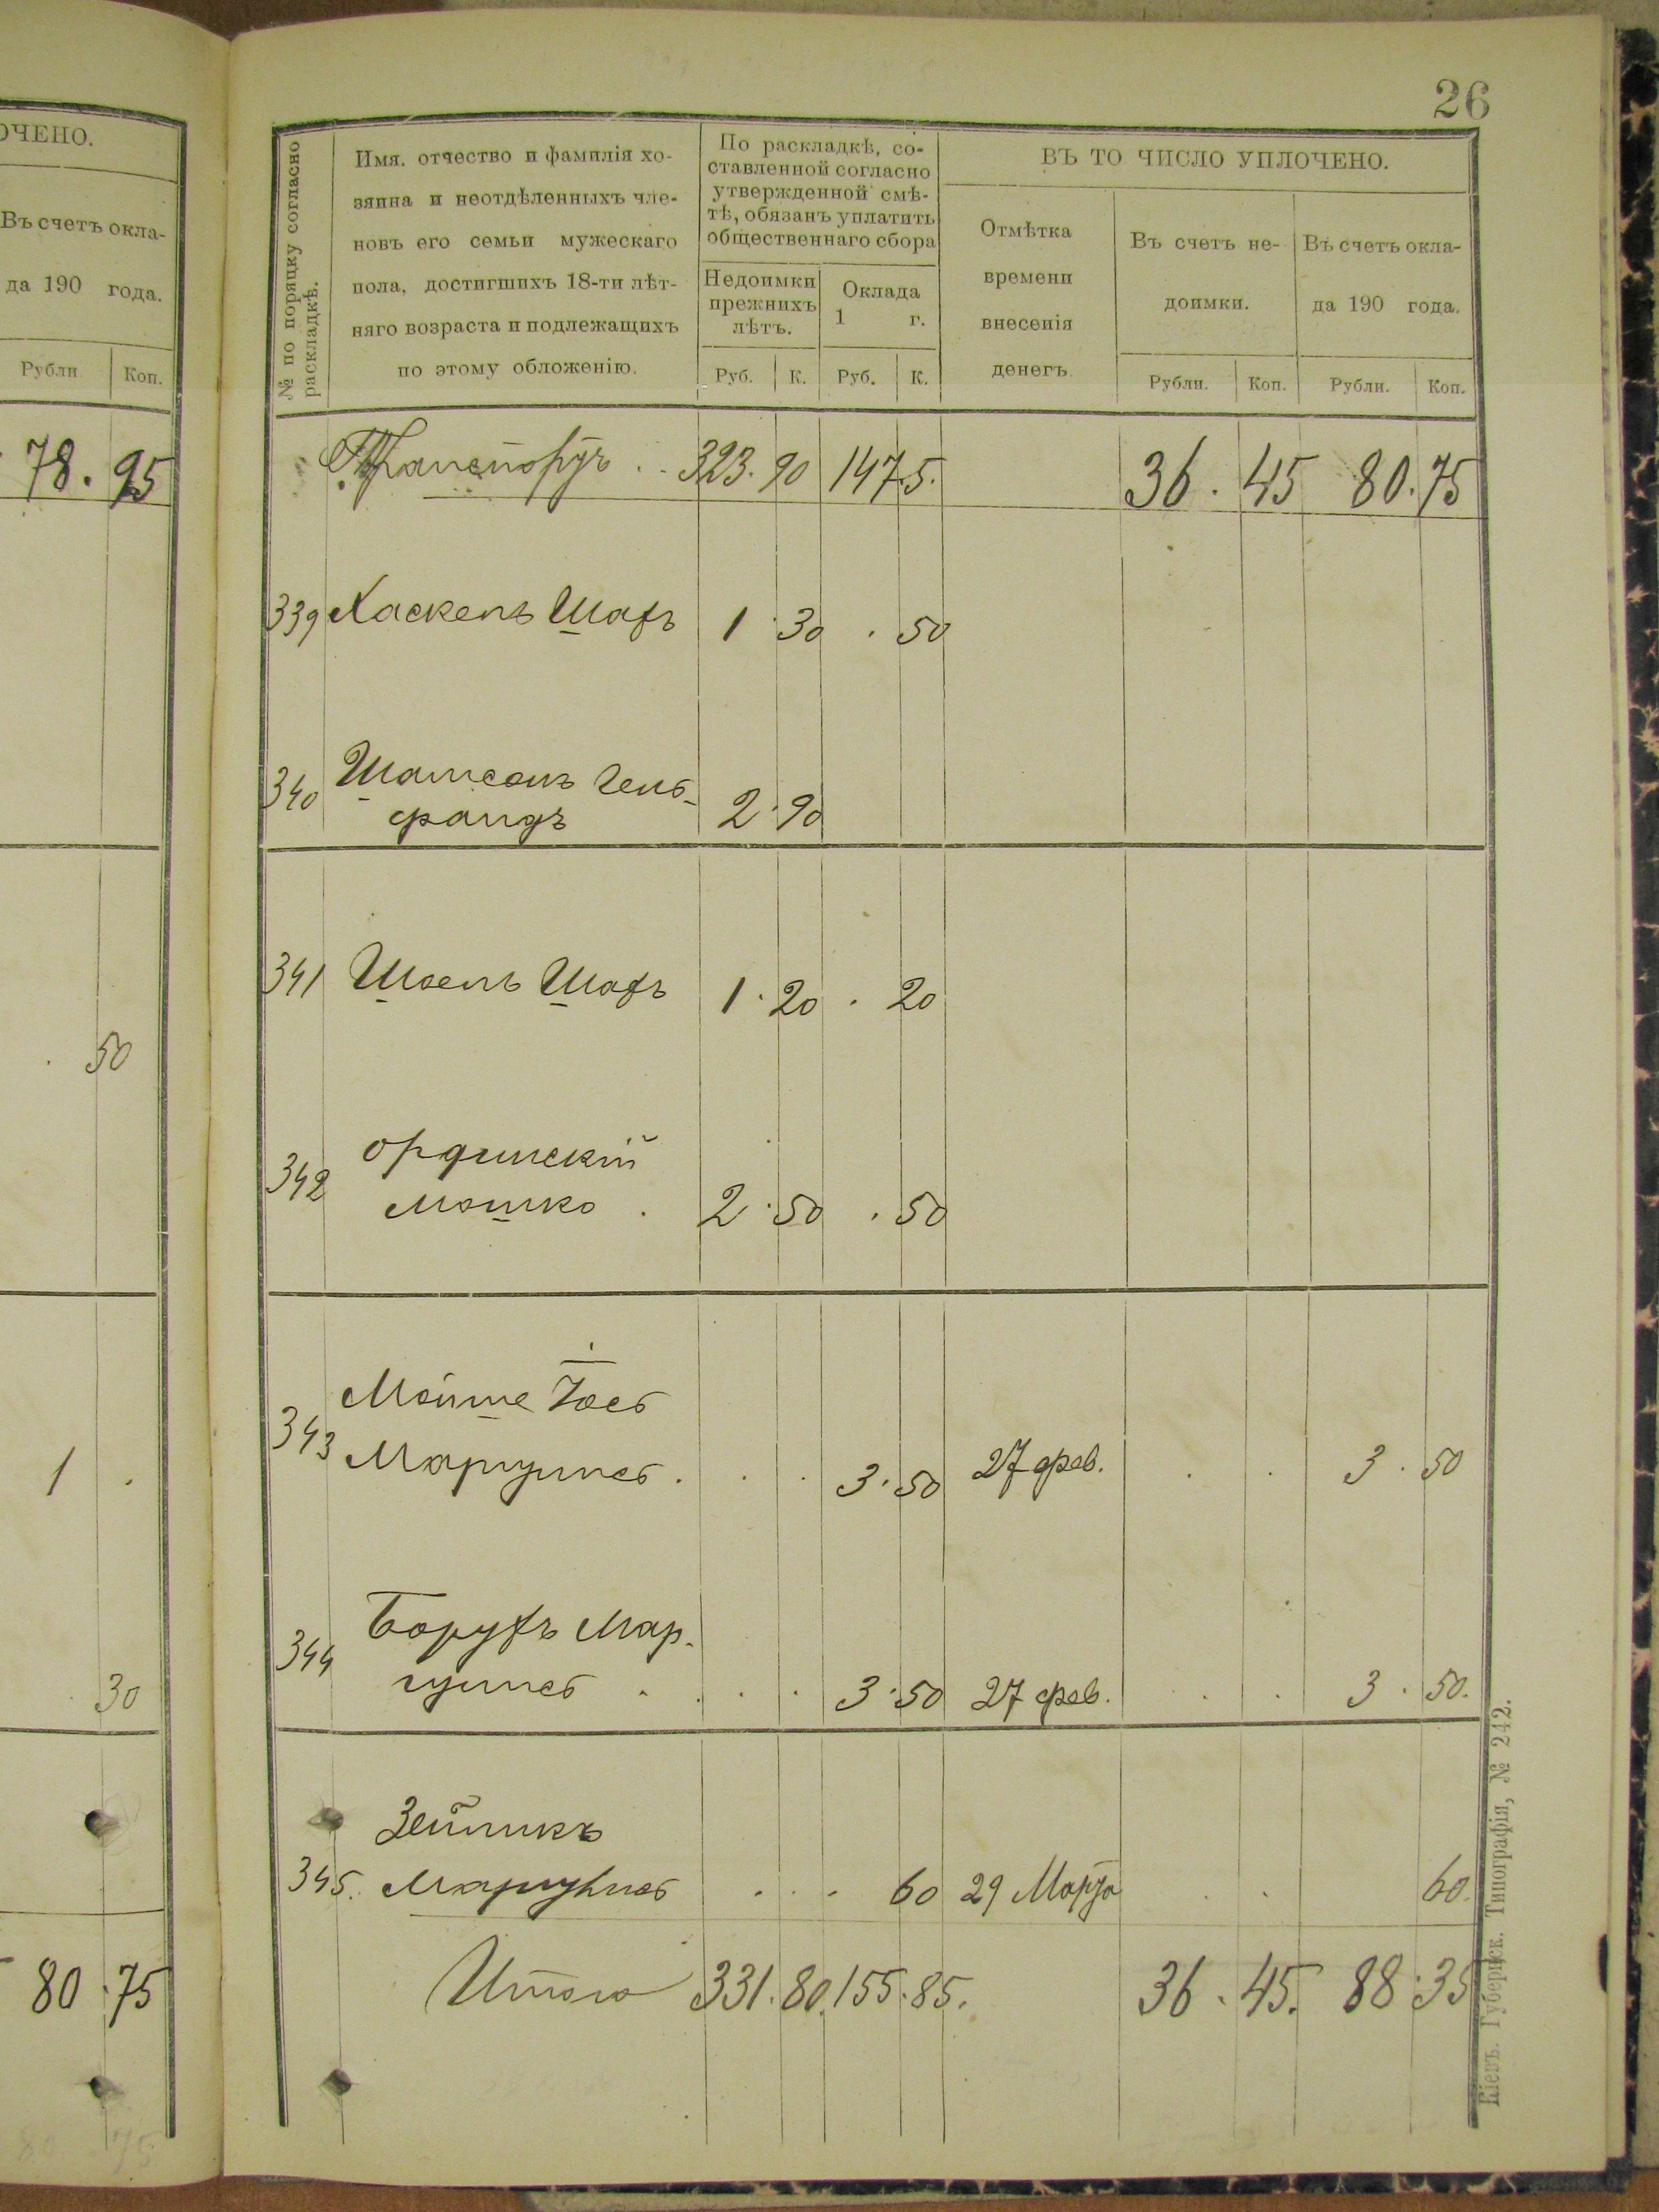 ОЧЕНО.
Въ счетъ окла-
да 190 года.
Рубли. Коп.
78. 95
50
1 .
30
80.75
26
№ по поряцку согласно
раскладкѣ.
Имя, отчество и фамилія хо-
зяина и неотдѣленныхъ чле-
новъ его семьи мужескаго
пола, достигшихъ 18-ти лѣт-
няго возраста и подлежащихъ
по этому обложенію.
По раскладкѣ, со-
ставленной согласно
утвержденной смѣ-
тѣ, обязанъ уплатить
общественнаго сбора
Недоимки
прежнихъ
лѣтъ.
Оклада
1 г.
Руб. К. Руб. К.
ВЪ ТО ЧИСЛО УПЛОЧЕНО.
Отмѣтка
времени
внесенія
денегъ.
Въ счетъ не-
доимки.
Въ счетъ окла-
да 190 года.
Рубли. Коп. Рубли. Коп.
Транспортъ . . 323.90 147.5. 36.45 80.75
339 Хаскель Шафъ 1.30 .50
340 Шамсонъ Гель-
фандъ 2.90
341 Шоель Шафъ 1.20 .20
342 Ординскій
Мошко . 2.50 .50
343 Мойше Іось
Маргулисъ . . . 3.50 27 фев. . . 3.50
344 Борухъ Мар-
гулисъ . . . . 3.50 27 фев. . . 3.50.
345. Зейликъ
Маргулисъ . . 60 29 Марта . . 60.
Итого 331.80. 155.85. 36.45. 88.35
Кіевъ. Губернск. Типографія, № 242.